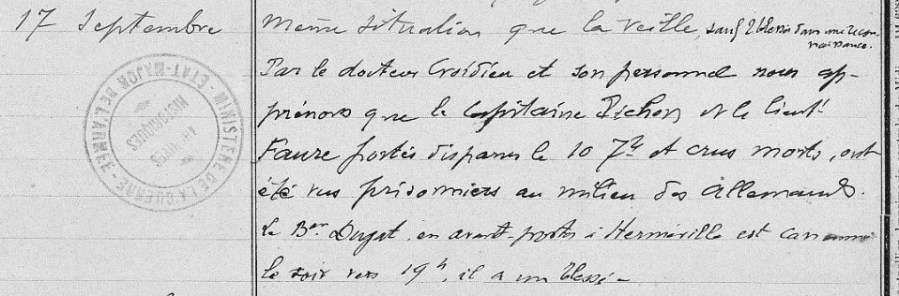 17 Septembre
Même situation que la veille sauf 2 blessés dans une recon-
naissance.
Par le docteur Croidieu et son personnel nous ap-
prenons que le capitaine Pichon et le lieut
Faure portés disparus le 10 7bre et crus morts, ont
été vus prisonniers au milieu des allemands.
Le Bon Dugat, en avant-postes à Herméville est canonné
le soir vers 19h, il a un blessé -
MINISTERE DE LA GUERRE - ETAT-MAJOR DE L'ARMEE -
ARCHIVES
HISTORIQUES